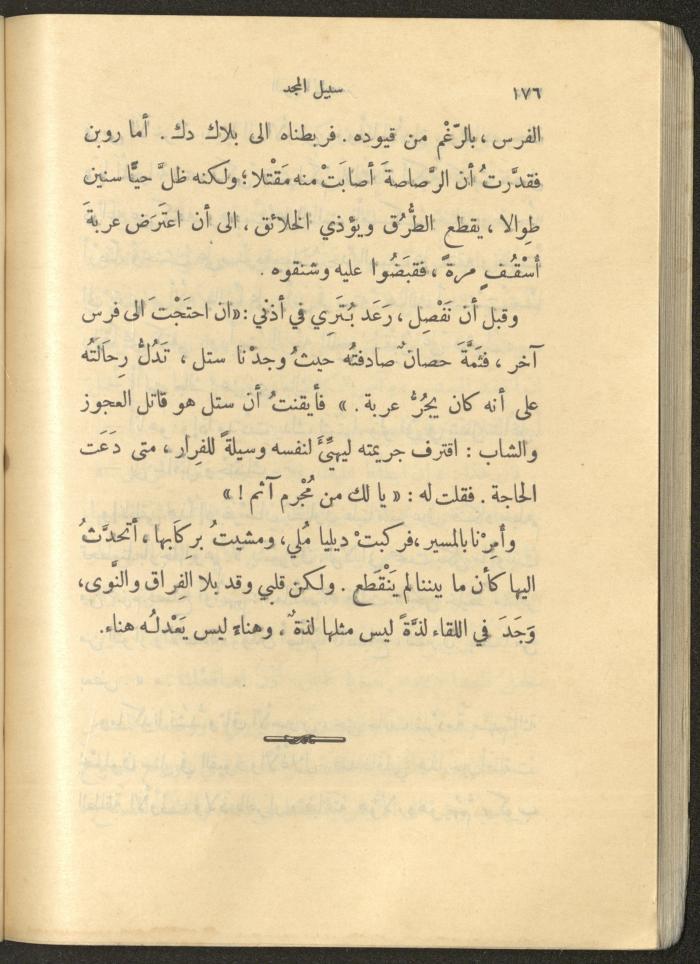 ١٧٦ سبيل المجد
الفرس ، بالرّغْم من قيوده . فربطناه الى بلاك دك . أما روبن
فقدَّرتُ أن الرَّصاصةَ أصابَتْ منه مَقْتلا ؛ ولكنه ظلَّ حيًّا سنين
طِوالا ، يقطع الطُّرُق ويؤذي الخلائق ، الى أن اعتَرَض عربةَ
أُسْقُفٍ مرةً ، فقبَضُوا عليه وشنقوه .
وقبل أن نَفْصِل ، رَعَد بُتَري في أذني : «ان احتَجْتَ الى فرس
آخر ، فثَمَّةَ حصانٌ صادفتُه حيثُ وجدْنا ستل ، تَدُلُّ رِحَالَتُه
على أنه كان يجُرُّ عربة . » فأيقنتُ أن ستل هو قاتل العجوز
والشاب : اقترف جريمته ليهيِّئَ لنفسه وسيلةً للفرار ، متى دَعَت
الحاجة . فقلت له : « يا لك من مُجْرم آثم ! »
وأمِرْنا بالمسير ، فركبتْ ديليا مُلي ، ومشيتُ بركَابها ، أتحدَّثُ
اليها كأن ما بيننا لم يَنْقَطع . ولكن قلبي وقد بلا الفِراق والنَّوى ،
وَجَدَ في اللقاء لذَّةً ليس مثلها لذةٌ ، وهناءً ليس يَعْدلُه هناء .